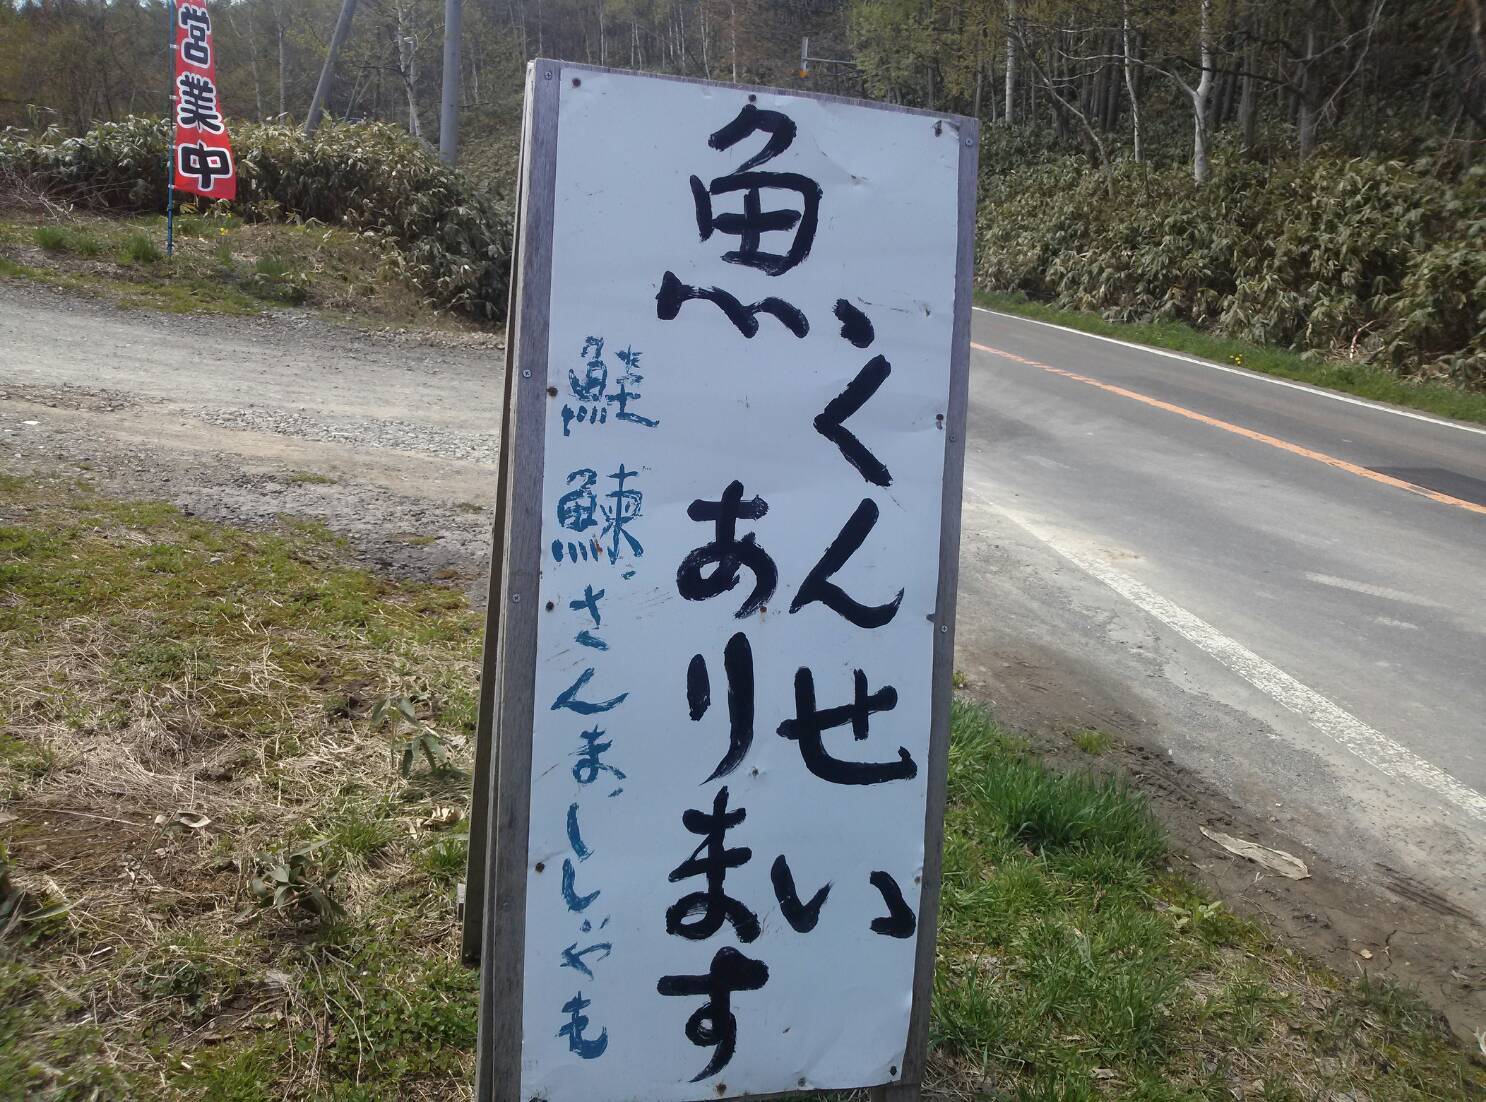 営業中
魚くんせい
あります
鮭 鰊 さんま ししゃも